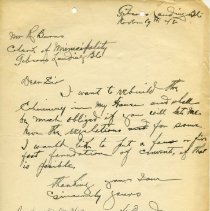 Gibsons Landing BC
Nov 9th 42
Mr R. Burns
Clerk of Municipality
Gibsons Landing BC
Dear Sir
I want to rebuild the
Chimney in my House and shall
be much obliged if you will let me
have the regulations for same
I would like to put a
foot foundation of cement, if that
is possible.
Thanking you I am
Sincerely yours